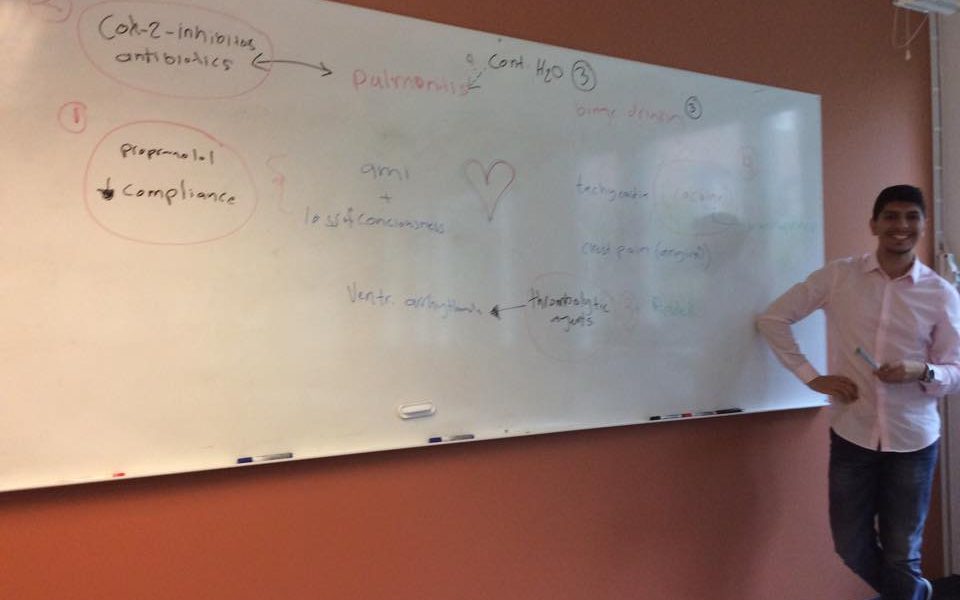 Cox-2-inhibitos
antibiotics
Pulmonitis
Cont. H2O 3
binge drinkin 3
1
propranolol
compliance
ami
+
loss of conciousness
tachycardia cocaine
chest pain (angina)
Ventr. arrhythmia
thrombolytic
agents